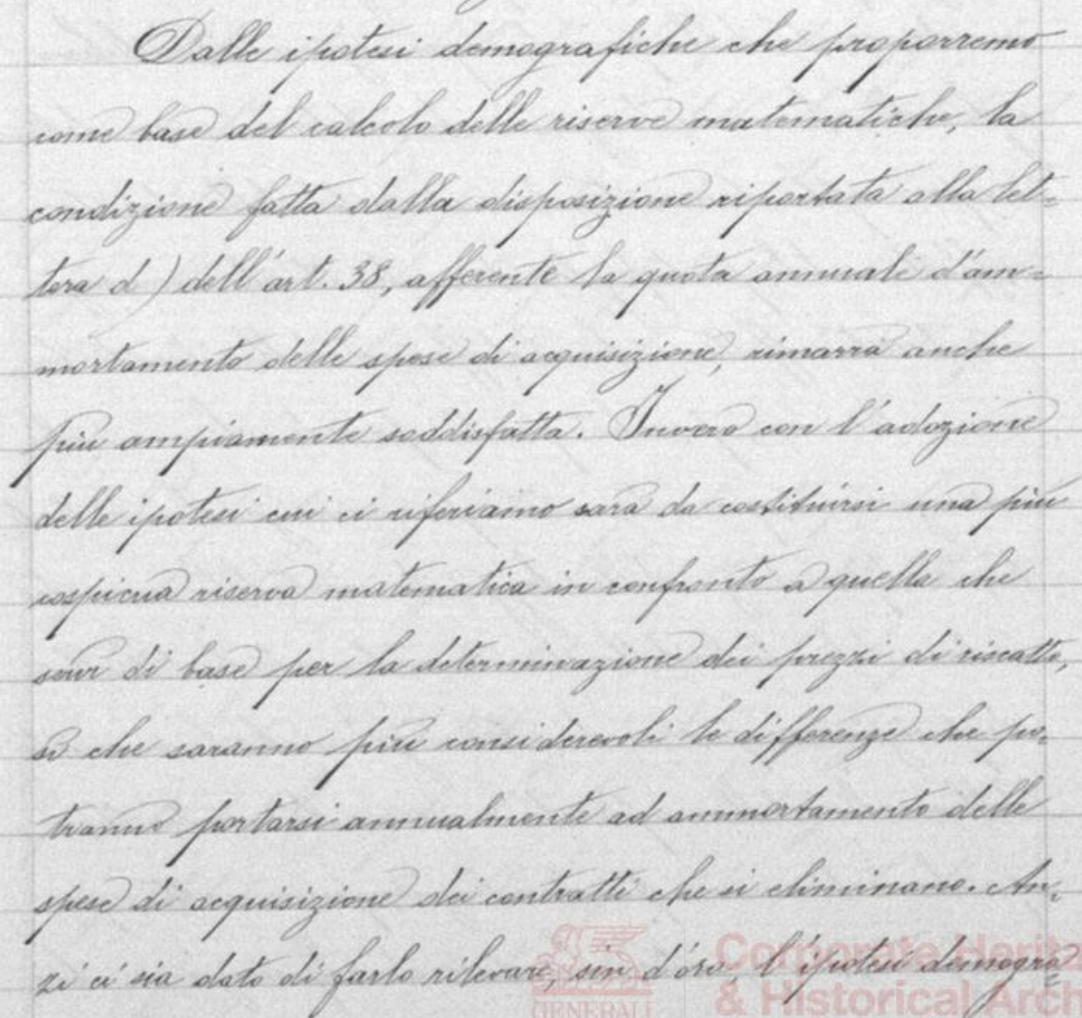 Dalle ipotesi demografiche che proporremo
come base del calcolo delle riserve matematiche, la
condizione fatta dalla disposizione riportata alla let=
tera d) dell'art. 38, afferente la quota annuale d'am=
mortamento delle spese di acquisizione, rimarrà anche
più ampiamente soddisfatta. Invero con l'adozione
delle ipotesi cui ci riferiamo sarà da costituirsi una più
cospicua riserva matematica in confronto a quella che
di base per la determinazione dei prezzi di riscatto,
sì che saranno più considerevoli le differenze che po=
tranno portarsi annualmente ad ammortamento delle
spese di acquisizione dei contratti che si eliminano. An=
zi ci sia dato di farlo rilevare, sin d'ora, l'ipotesi demogra=
GENERALI
Corporate Herita
& Historical Arch